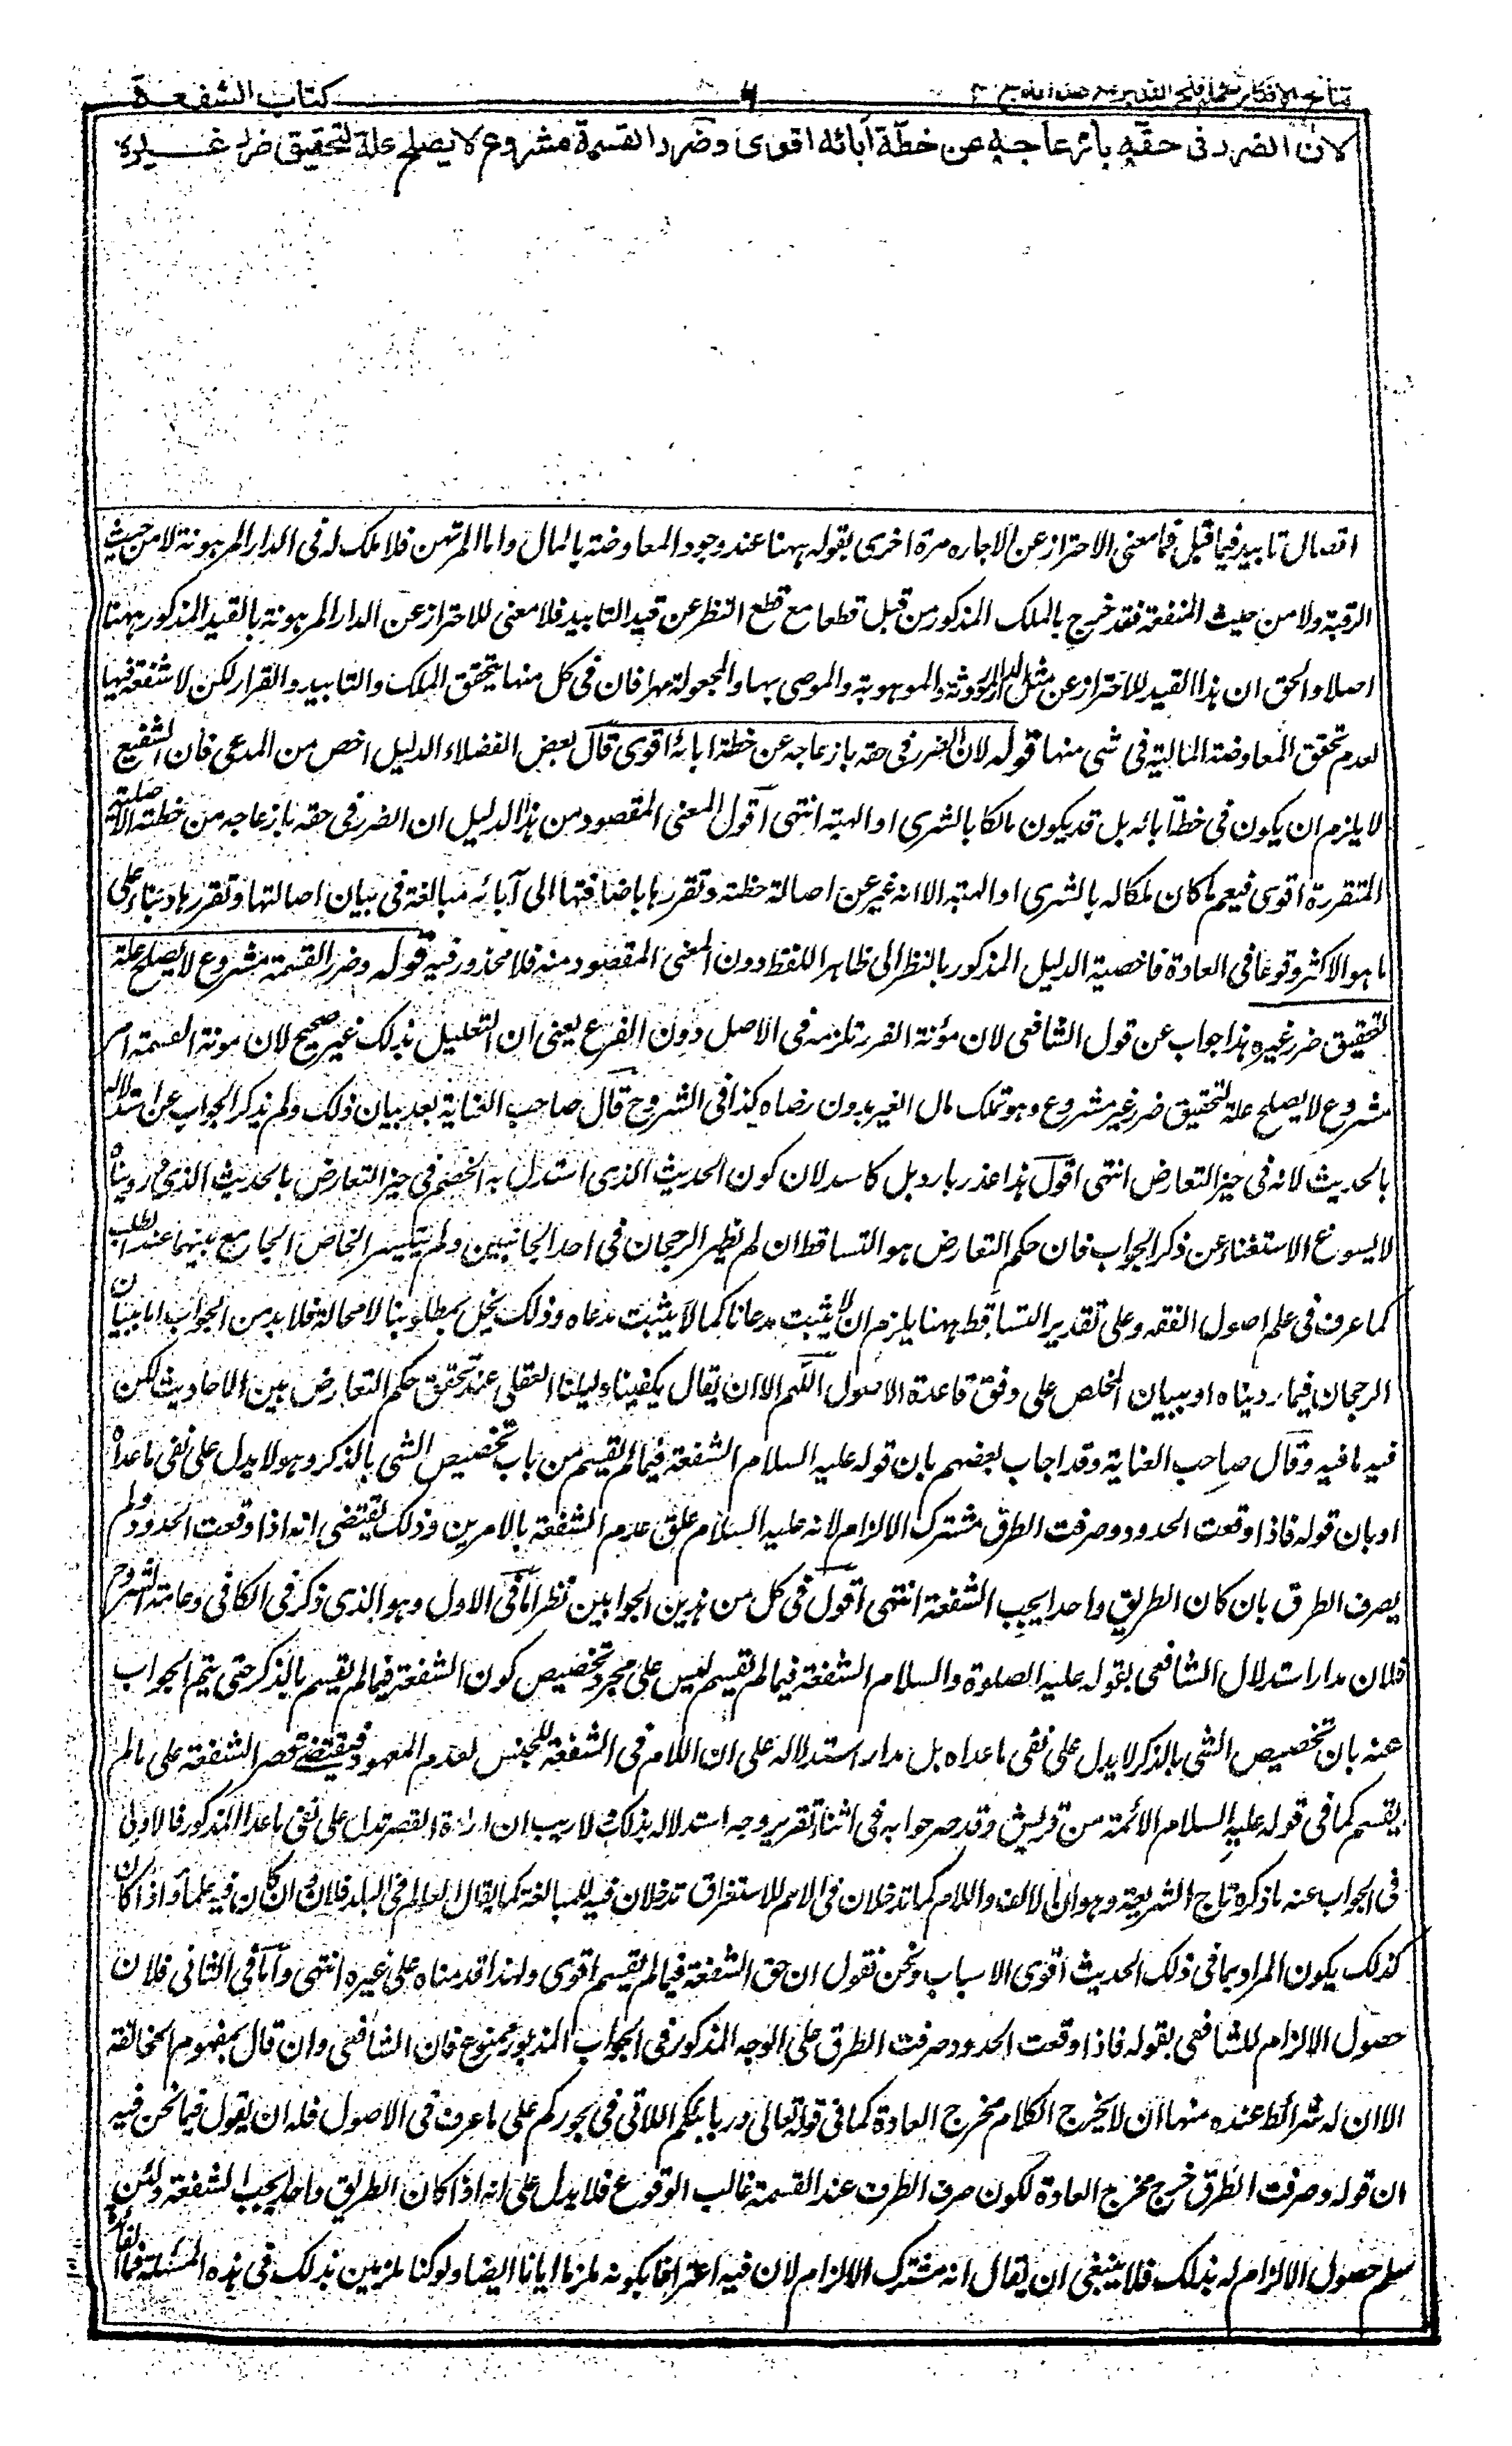 نتائج الافكار تكملة فتح القدير مع هدايه ج ٤
٦
كتاب الشفعة
لان الضرر فى حقه بازعاجه عن خطة آبائه اقوى وضرر القسمة مشروع لا يصلح علة لتحقيق ضرر غيره
اتصال تابيد فيما قبل فما معنى الاحتراز عن الاجاره مرة اخرى بقوله ههنا عند وجود المعاوضة بالمال واما المرتهن فلا ملك له فى الدار المرهونة لا من حيث
الرقبة ولا من حيث المنفعة فقد خرج بالملك المذكور من قبل قطعا مع قطع النظر عن قيد التابيد فلا معنى للاحتراز عن الدار المرهونة بالقيد المذكور ههنا
اصلا والحق ان هذا القيد للاحتراز عن مثل الدار الموروثة والموهوبة والموصى بها والمجعولة مهرا فان فى كل منها يتحقق الملك والتابيد والقرار لكن لا شفعة فيها
لعدم تحقق المعاوضة المالية فى شى منها قوله لان الضرر فى حقه بازعاجه عن خطة ابائه اقوى قال بعض الفضلاء الدليل اخص من المدعى فان الشفيع
لا يلزم ان يكون فى خطة آبائه بل قد يكون مالكا بالشرى او الهبة انتهى اقول المعنى المقصود من هذا الدليل ان الضرر فى حقه بازعاجه من خطته الاصلية
المتقررة اقوى فيعم ما كان ملكا له بالشرى او الهبة الا انه غير عن اصالة خطته وتقررها باضافتها الى آبائه مبالغة فى بيان اصالتها وتقررها وبناء على
ما هو الاكثر وقوعا فى العادة فاخصية الدليل المذكور بالنظر الى ظاهر اللفظ دون المعنى المقصود منه فلا محذور فيه قوله وضرر القسمة مشروع لا يصلح علة
لتحقيق ضرر غيره هذا جواب عن قول الشافعى لان مؤنة القسمة تلزمه فى الاصل دون الفرع يعنى ان التعليل بذلك غير صحيح لان مونة القسمة امر
مشروع لا يصلح علة لتحقيق ضرر غير مشروع وهو تملك مال الغير بدون رضاه كذا فى الشروح قال صاحب العناية بعد بيان ذلك ولم يذكر الجواب عن استدلاله
بالحديث لانه فى حيز التعارض انتهى اقول هذا عذر بارد بل كاسد لان كون الحديث الذى استدل به الخصم فى حيز التعارض بالحديث الذى رويناه
لا يسوغ الاستغناء عن ذكر الجواب فان حكم التعارض هو التساقط ان لم يظهر الرجحان فى احد الجانبين ولم يتيسر الخاص الجامع بينهما عند الطلب
كما عرف فى علم اصول الفقه وعلى تقدير التساقط ههنا يلزم ان لا يثبت مدعانا كما لا يثبت مدعاه وذلك يخل بمطلوبنا لا محالة فلا بد من الجواب اما ببيان
الرجحان فيما رويناه او ببيان المخلص على وفق قاعدة الاصول اللهم الا ان يقال يكفينا دليلنا العقلى عند تحقق حكم التعارض بين الاحاديث لكن
فيه ما فيه وقال صاحب العناية وقد اجاب بعضهم بان قوله عليه السلام الشفعة فيما لم يقسم من باب تخصيص الشى بالذكر وهو لا يدل على نفى ما عداه
او بان قوله فاذا وقعت الحدود وصرفت الطرق مشترك الالزام لانه عليه السلام علق عدم الشفعة بالامرين وذلك يقتضى انه اذا وقعت الحدود ولم
يصرف الطرق بان كان الطريق واحدا يجب الشفعة انتهى اقول فى كل من هذين الجوابين نظر اما فى الاول وهو الذى ذكر فى الكافى وعامة الشروح
فلان مدار استدلال الشافعى بقوله عليه الصلوة والسلام الشفعة فيما لم يقسم ليس على مجرد تخصيص كون الشفعة فيما لم يقسم بالذكر حتى يتم الجواب
عنه بان تخصيص الشى بالذكر لا يدل على نفى ما عداه بل مدار استدلاله على ان اللام فى الشفعة للجنس لعدم المعهود فيقتضى قصر الشفعة على ما لم
يقسم كما فى قوله عليه السلام الأئمة من قريش وقد صرحوا به فى اثناء تقرير وجه استدلاله بذلك لا ريب ان اداة القصر تدل على نفى ما عدا المذكور فالاولى
فى الجواب عنه ما ذكره تاج الشريعة وهو ان الالف واللام كما تدخلان فى الاسم للاستغراق تدخلان فيه للمبالغة كما يقال العالم فى البلد فلان وان كان فيه علماء واذا كان
كذلك يكون المراد بما فى ذلك الحديث اقوى الاسباب ونحن نقول ان حق الشفعة فيما لم يقسم اقوى ولهذا قدمناه على غيره انتهى واما فى الثانى فلان
حصول الالزام للشافعى بقوله فاذا وقعت الحدود صرفت الطرق على الوجه المذكور فى الجواب المذبور ممنوع فان الشافعى وان قال بمفهوم المخالفة
الا ان له شرائط عنده منها ان لا يخرج الكلام مخرج العادة كما فى قوله تعالى وربائبكم اللاتى فى حجوركم على ما عرف فى الاصول فله ان يقول فيما نحن فيه
ان قوله وصرفت الطرق خرج مخرج العادة لكون صرف الطرق عند القسمة غالب الوقوع فلا يدل على انه اذا كان الطريق واحدا يجب الشفعة ولئن
سلم حصول الالزام له بذلك فلا ينبغى ان يقال انه مشترك الالزام لان فيه اعترافا بكونه ملزما ايانا ايضا ولو كنا ملزمين بذلك فى هذه المسئلة فما الفائدة